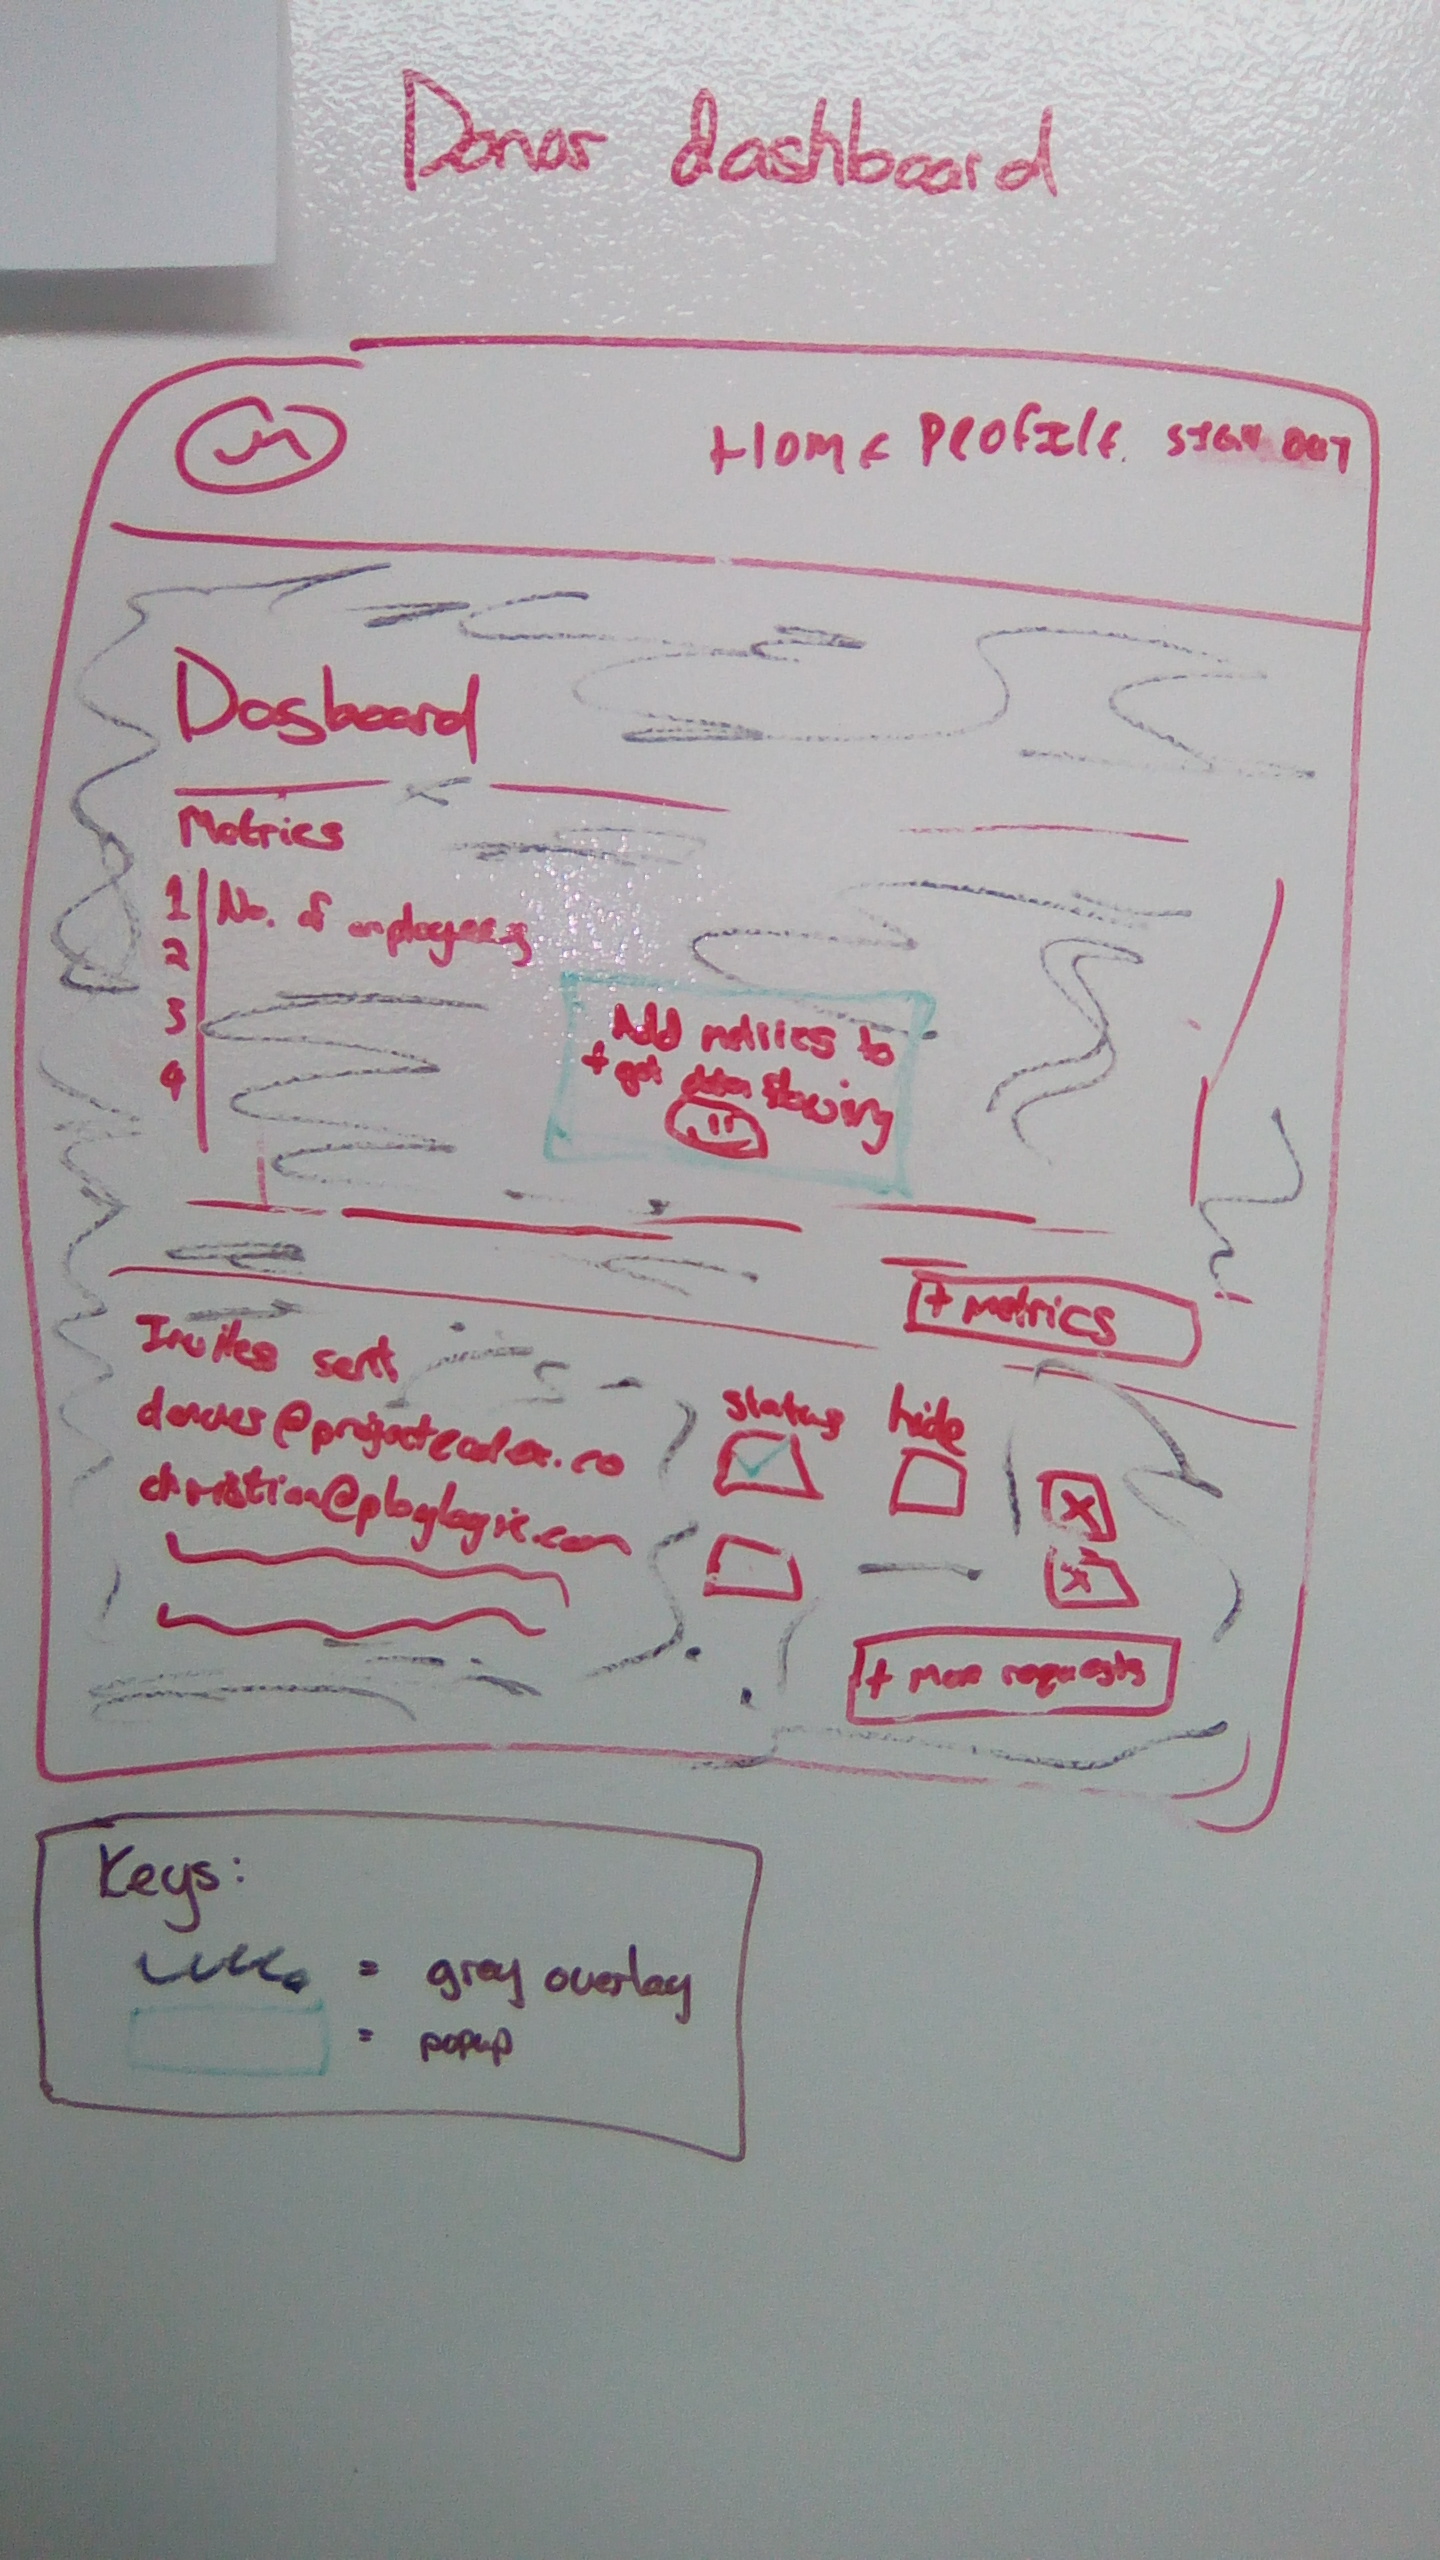 Donor dashboard
Home Profile SIGN OUT
Dasboard
Metrics
1 No. of employees
2
3
4
Add metrics to
+ get data flowing
+ metrics
Invites sent
status hide
christian@ploglogic.com
x
x
+ more requests
Keys:
= grey overlay
= popup